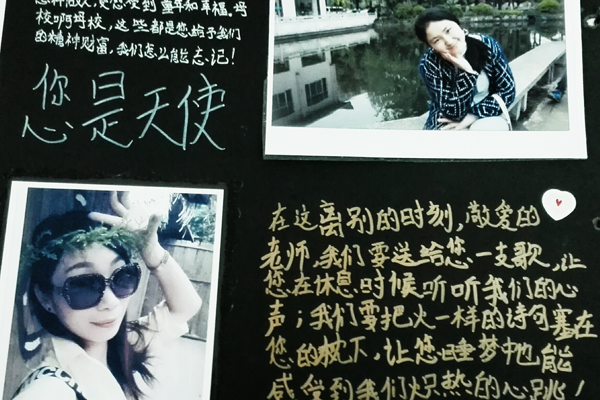 怎样做人,更感受到童年和幸福。母
校啊母校,这些都是您给予我们
的精神财富,我们怎么能忘记!
您是天使
在这离别的时刻,敬爱的
老师,我们要送给您一支歌,让
您在休息时候听听我们的心
声;我们要把火一样的诗句塞在
您的枕下,让您睡梦中也能
感受到我们炽热的心跳!